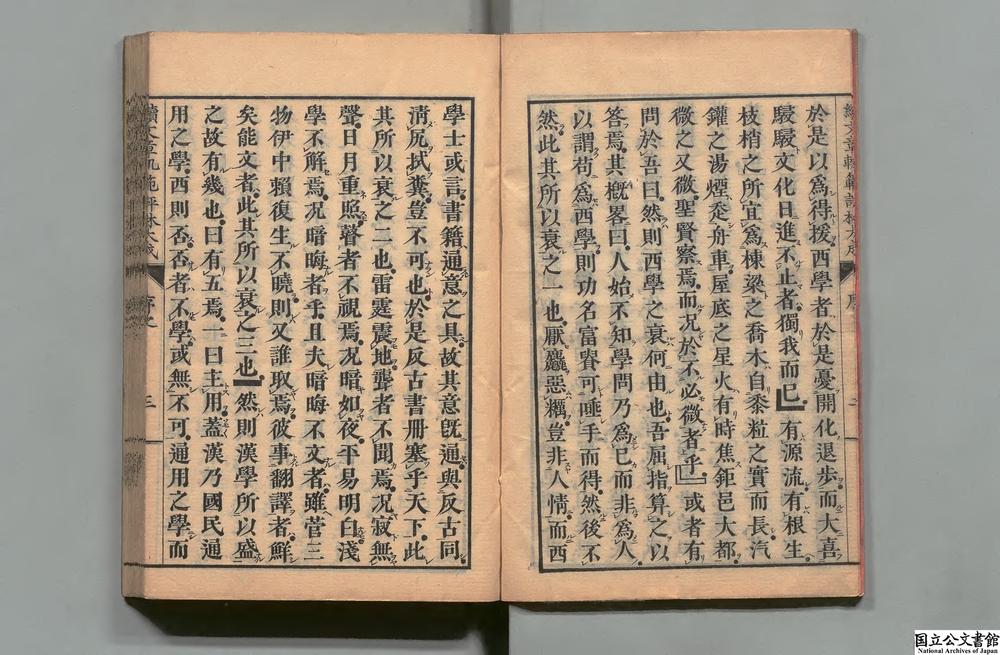 於是以爲得援西學者於是憂開化退歩而大喜
駸駸文化日進不止者獨我而已有源流有根生
枝梢之所宜爲棟梁之喬木自黍粒之實而長汽
鑵之湯煙走舟車屋底之星火有時焦鉅邑大都
微之又微聖賢察焉而況於不必微者乎或者有
問於吾曰然則西學之衰何由也吾屈指算之以
答焉其概畧曰人始不知學問乃爲己而非爲人
以謂苟爲西學則功名富貴可唾手而得然後不
然此其所以衰之一也厭麤惡糲豈非人情而西
學士或言書籍通意之具故其意既通與反古同
清尻拭糞豈不可也於是反古書册塞乎天下此
其所以衰之二也雷霆震地聾者不聞焉况寂無
聲日月重照瞽者不視焉况暗如夜平易明白淺
學不解焉况暗晦者乎且夫暗晦不文者雖菅三
物伊中賴復生不曉則又誰取焉彼事翻譯者鮮
矣能文者此其所以衰之三也然則漢學所以盛
之故有幾也曰有五焉一曰主用蓋漢乃國民通
用之學西則否否者不學或無不可通用之學而
續文章軌範評林大成
序
三
国立公文書館
National Archives of Japan